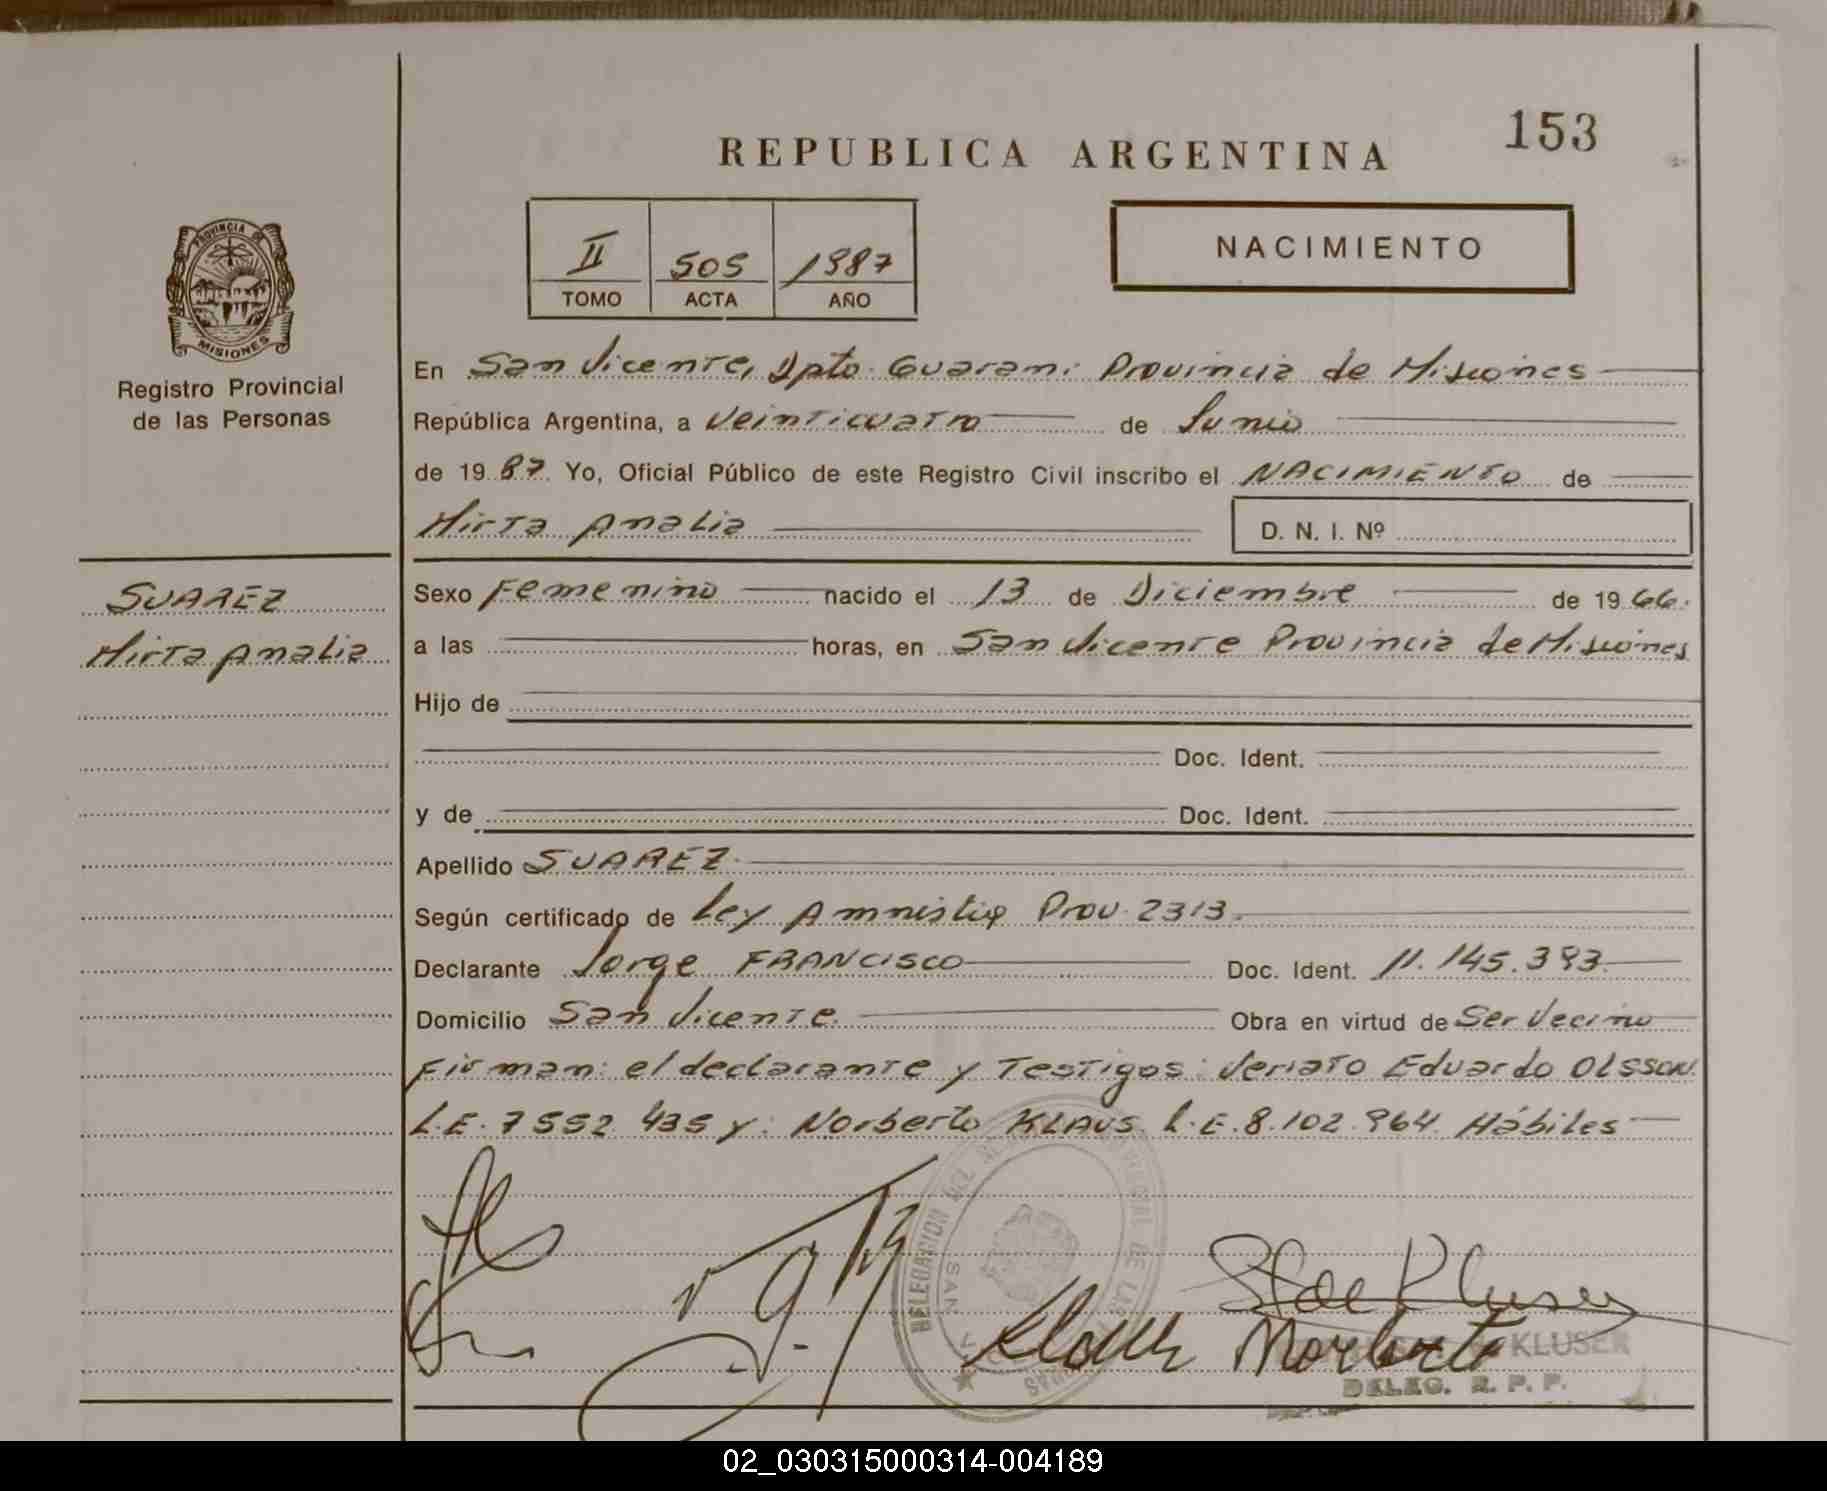 153
REPUBLICA ARGENTINA
II 505 1987
TOMO ACTA AÑO
NACIMIENTO
PROVINCIA DE
MISIONES
Registro Provincial
de las Personas
En San Vicente, Dpto. Guarani Provincia de Misiones
República Argentina, a Veinticuatro de Junio
de 1987. Yo, Oficial Público de este Registro Civil inscribo el NACIMIENTO de
Mirta Analia D. N. I. Nº
SUAREZ
Mirta Analia
Sexo Femenino nacido el 13 de Diciembre de 1966.
a las horas, en San Vicente Provincia de Misiones
Hijo de
Doc. Ident.
y de Doc. Ident.
Apellido SUAREZ.
Según certificado de Ley Amnistia Prov. 2313.
Declarante Jorge FRANCISCO Doc. Ident. 11.145.393.
Domicilio San Vicente. Obra en virtud de Ser Vecino
Firman: el declarante y Testigos: Veriato Eduardo OLSSON.
L.E. 7552 435 y: Norberto KLAUS L.E. 8.102.964. Hábiles
DELEGACION DEL
SAN
Klaus Norberto
KLUSER
DELEG. R. P. P.
02_030315000314-004189